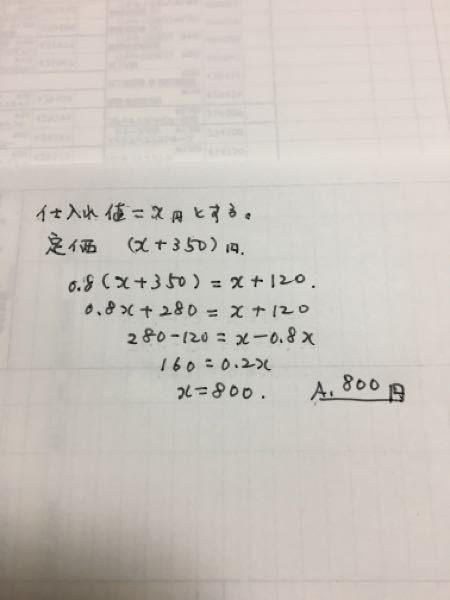 仕入れ値=x円とする。
定価 (x+350)円.
0.8(x+350)=x+120.
0.8x+280=x+120
280-120=x-0.8x
160=0.2x
x=800.
A.800円